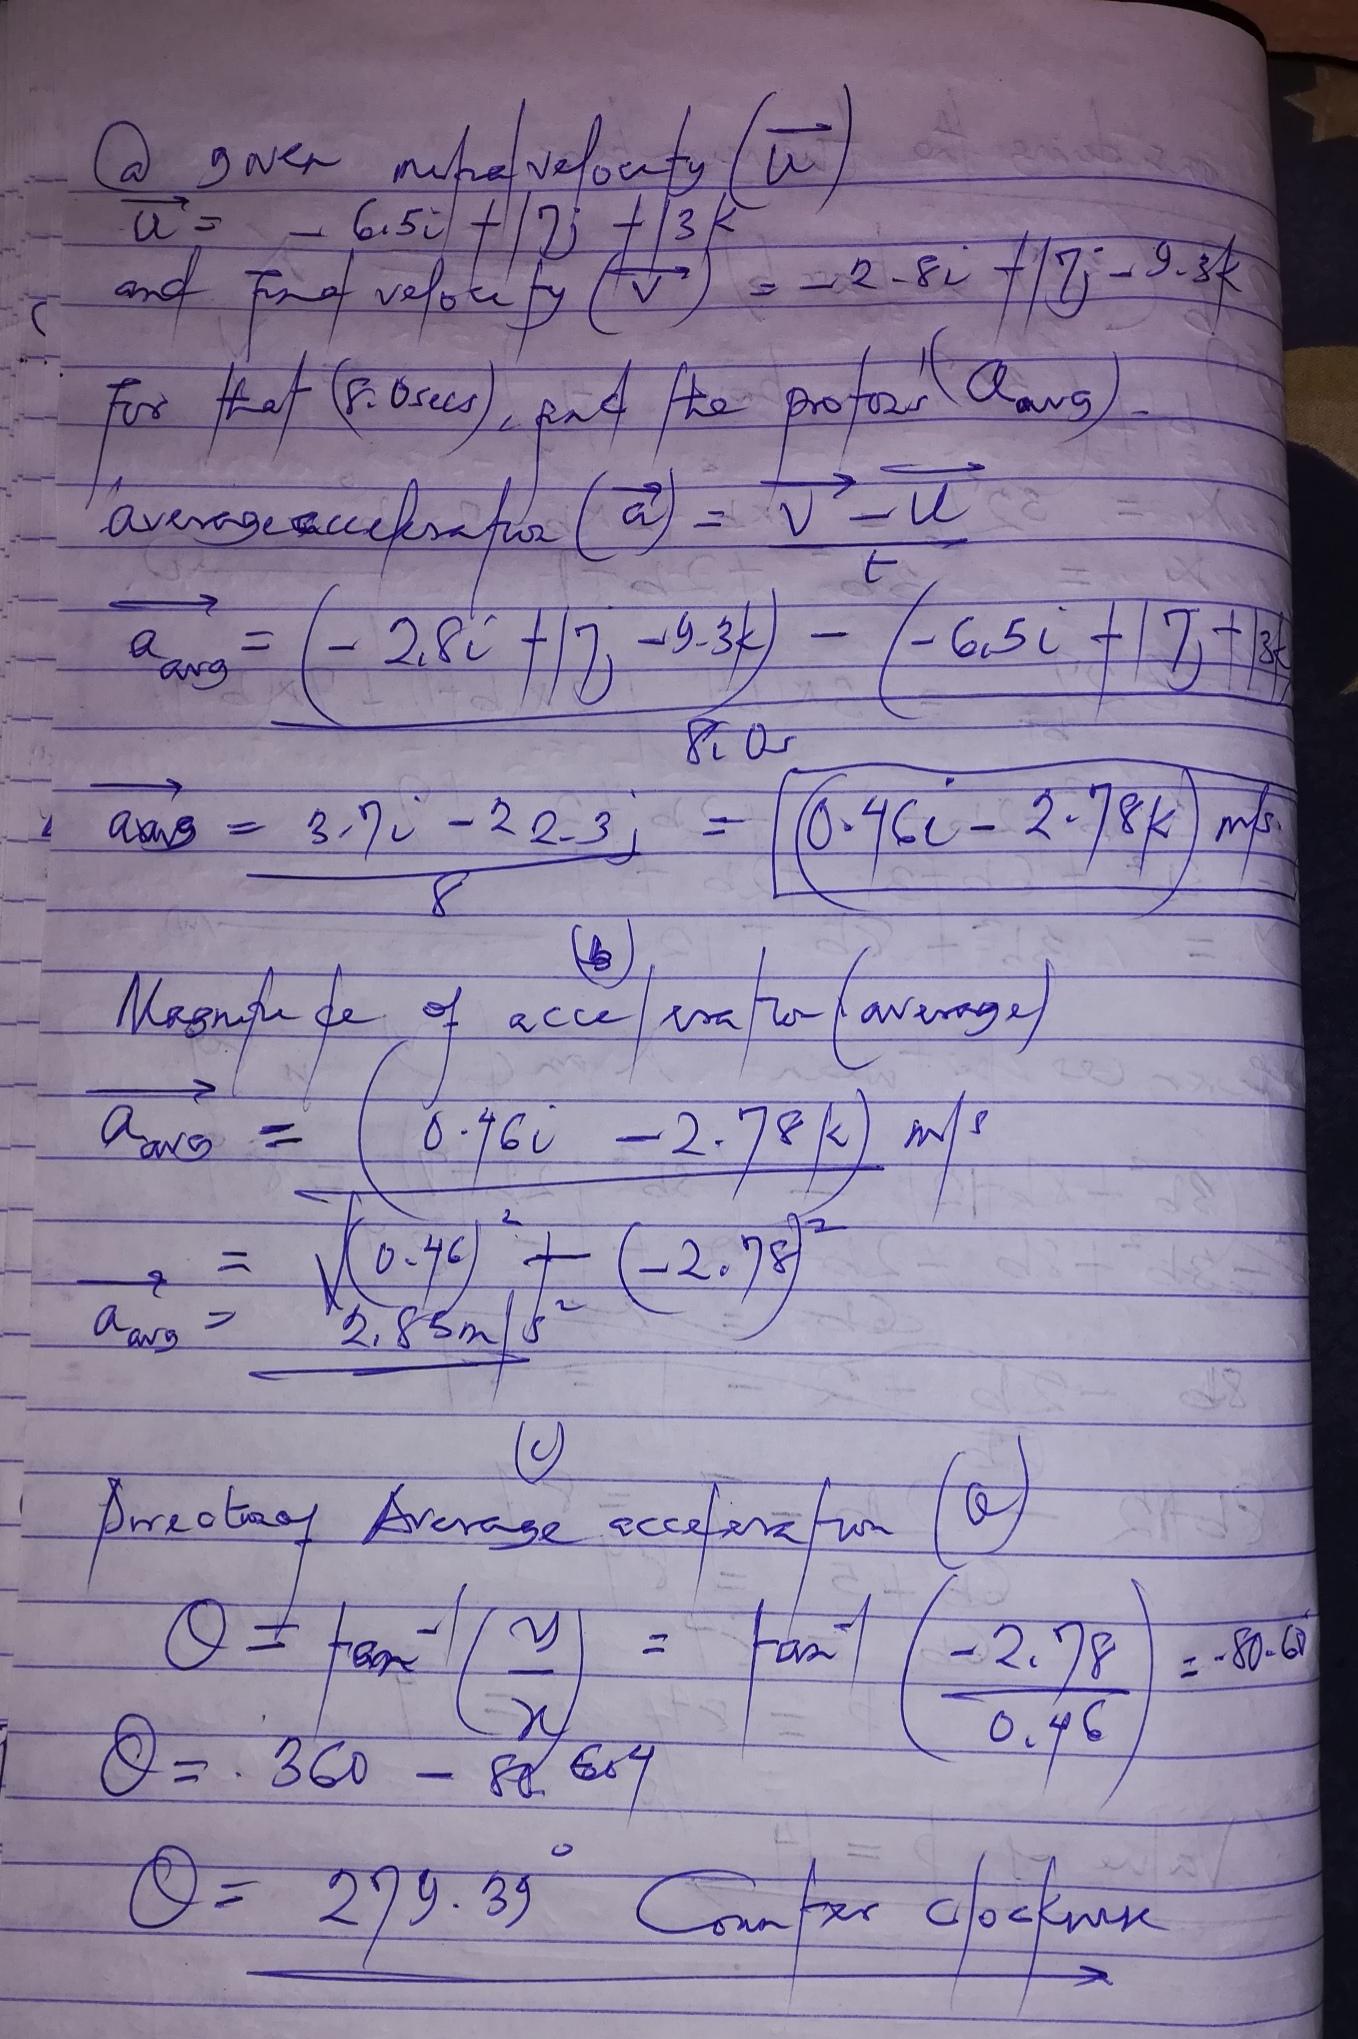 (a) given initial velocity (u)
u = - 6.5i + 17j + 13k
and Final velocity (v) = - 2.8i + 17j - 9.3k
For that (8.0secs), find the proton's (a avg).
average acceleration (a) = v - u
t
a avg = (- 2.8i + 17j - 9.3k) - (- 6.5i + 17j + 13k
8.0s
a avg = 3.7i - 22.3j = (0.46i - 2.78k) m/s.
8
(b)
Magnitude of acceleration (average)
a avg = (0.46i - 2.78k) m/s
= √(0.46)² + (-2.78)²
a avg = 2.85m/s²
(c)
Direction of Average acceleration (a)
θ = tan⁻¹ (y/x) = tan⁻¹ (-2.78/0.46) = -80.60
θ = 360 - 80.604
θ = 279.39° Counter clockwise